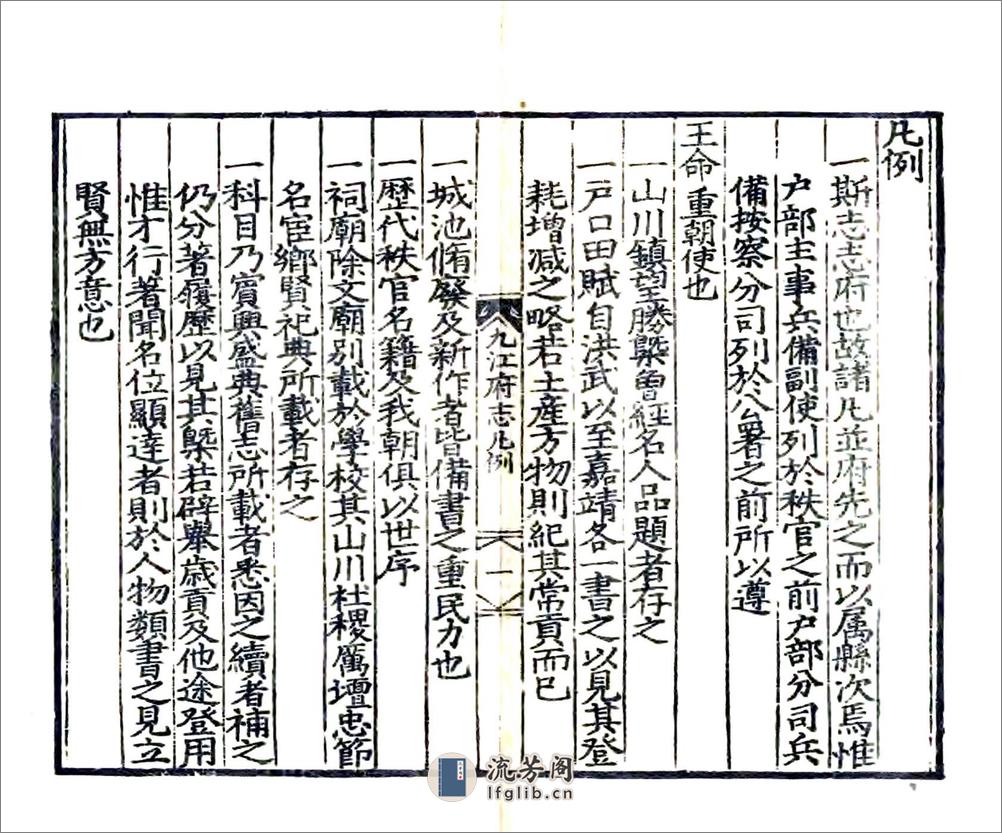 凡例
一斯志志府也故諸凡並府先之而以属縣次焉惟
户部主事兵備副使列於秩官之前户部分司兵
備按察分司列於公署之前所以遵
王命重朝使也
一山川鎮望勝槩曾經名人品題者存之
一户口田賦自洪武以至嘉靖各一書之以見其登
耗增减之略若土産方物則紀其常貢而已
九江府志凡例
一
一城池脩廢及新作者皆備書之重民力也
一歷代秩官名籍及我朝俱以世序
一祠廟除文廟别載於學校其山川社稷厲壇忠節
名宦鄉賢祀典所載者存之
一科目乃賓興盛典舊志所載者悉因之續者補之
仍分著履歷以見其槩若辟舉歲貢及他途登用
惟才行著聞名位顯達者則於人物類書之見立
賢無方意也
流芳阁
lfglib.cn